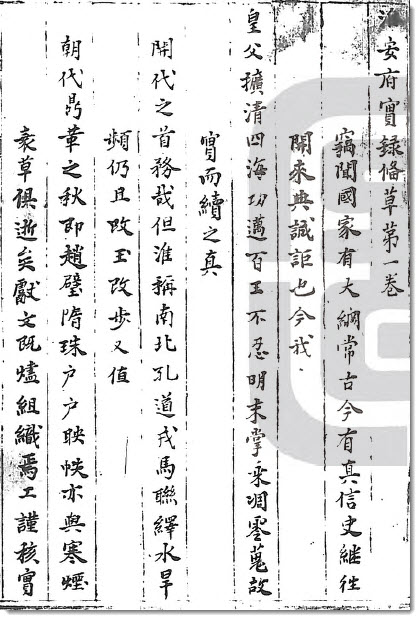 淮安府實録備草第一卷
竊聞國家有大綱常古今有真信史継徃
開來典誠詎也今我
皇父擴清四海功邁百王不忍明末掌采凋零蒐故
實而續之真
開代之首務哉但淮稱南北孔道戎馬聯繹水旱
頻仍且改玉改步又值
朝代鼎革之秋即趙璧隋珠户户映帙亦與寒煙
衰草俱逝矣獻文既燼組織焉工謹核實